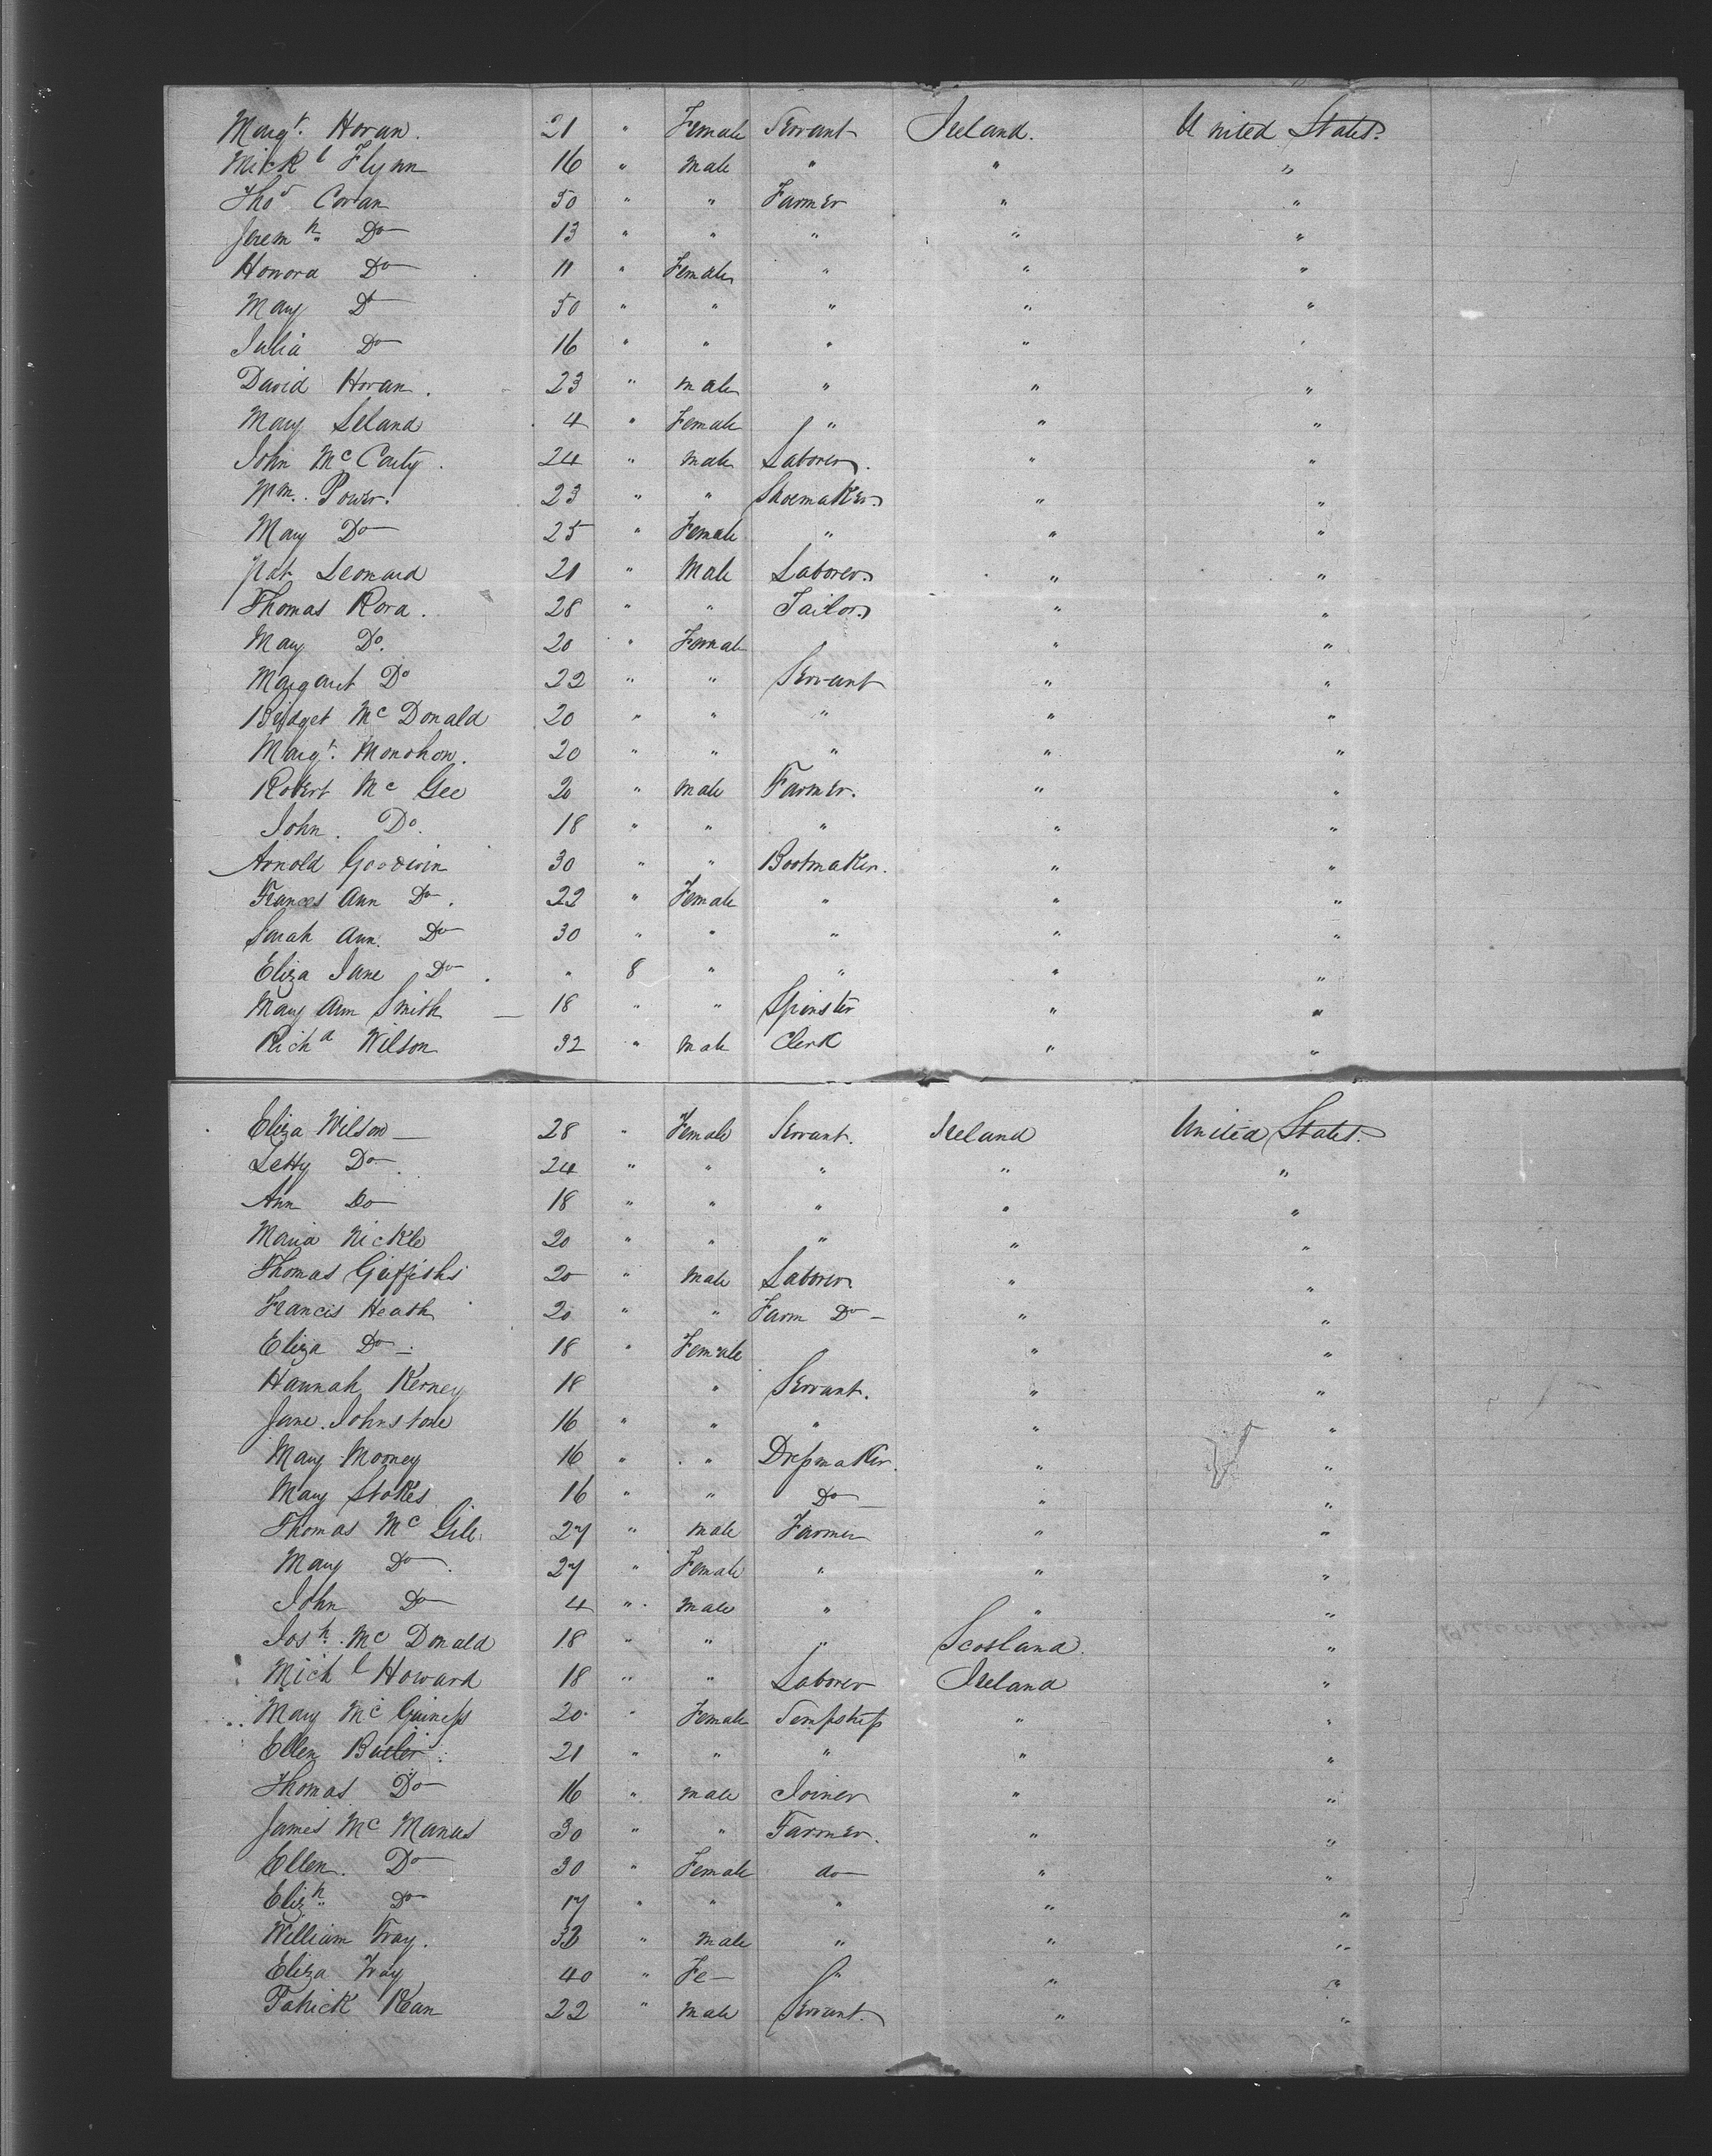 Margt. Horan. 21 " Female Servant Ireland. United States.
Mickl Flynn 16 " Male " " "
Thos Coran 50 " " Farmer " "
Jeremh Do 13 " " " " "
Honora Do 11 " Female " " "
Mary Do 50 " " " " "
Julia Do 16 " " " " "
David Horan. 23 " Male " " "
Mary Leland 4 " Female " " "
John Mc Carty. 24 " Male Laborer. " "
Wm. Power. 23 " " Shoemaker " "
Mary Do 25 " Female " " "
Pat Leonard 21 " Male Laborer " "
Thomas Rora. 28 " " Tailor " "
Mary Do. 20 " Female " " "
Margaret Do 22 " " Servant " "
Bridget Mc Donald 20 " " " " "
Margt. Monohon. 20 " " " " "
Robert Mc Gee 20 " Male Farmer. " "
John. Do. 18 " " " " "
Arnold Goodwin 30 " " Bootmaker. " "
Frances Ann Do. 22 " Female " " "
Sarah Ann. Do 30 " " " " "
Eliza Jane Do " 8 " " " "
Mary Ann Smith 18 " " Spinster " "
Richd Wilson 32 " Male Clerk " "
Eliza Wilson 28 " Female Servant. Ireland United States.
Letty Do 24 " " " " "
Ann Do 18 " " " " "
Maria Nickle 20 " " " " "
Thomas Griffiths 20 " Male Laborer " "
Francis Heath 20 " " Farm Do " "
Eliza Do 18 " Female " " "
Hannah Kerney 18 " Servant. " "
Jane Johnstone 16 " " " " "
Mary Mooney 16 " " Dressmaker. " "
Mary Stokes 16 " " Do " "
Thomas Mc Gile 27 " Male Farmer " "
Mary Do 27 " Female " " "
John Do 4 " Male " " "
Josh. Mc Donald 18 " " " Scotland. "
Michl Howard 18 " " Laborer Ireland "
Mary Mc Guiness 20 " Female Sempstress " "
Ellen Butler 21 " " " " "
Thomas Do 16 " Male Joiner " "
James Mc Manus 30 " " Farmer. " "
Ellen. Do 30 " Female do " "
Elizh Do 17 " " " " "
William Fray. 33 " Male " " "
Eliza Fray 40 " Fe " " "
Patrick Kean 22 " Male Servant. " "